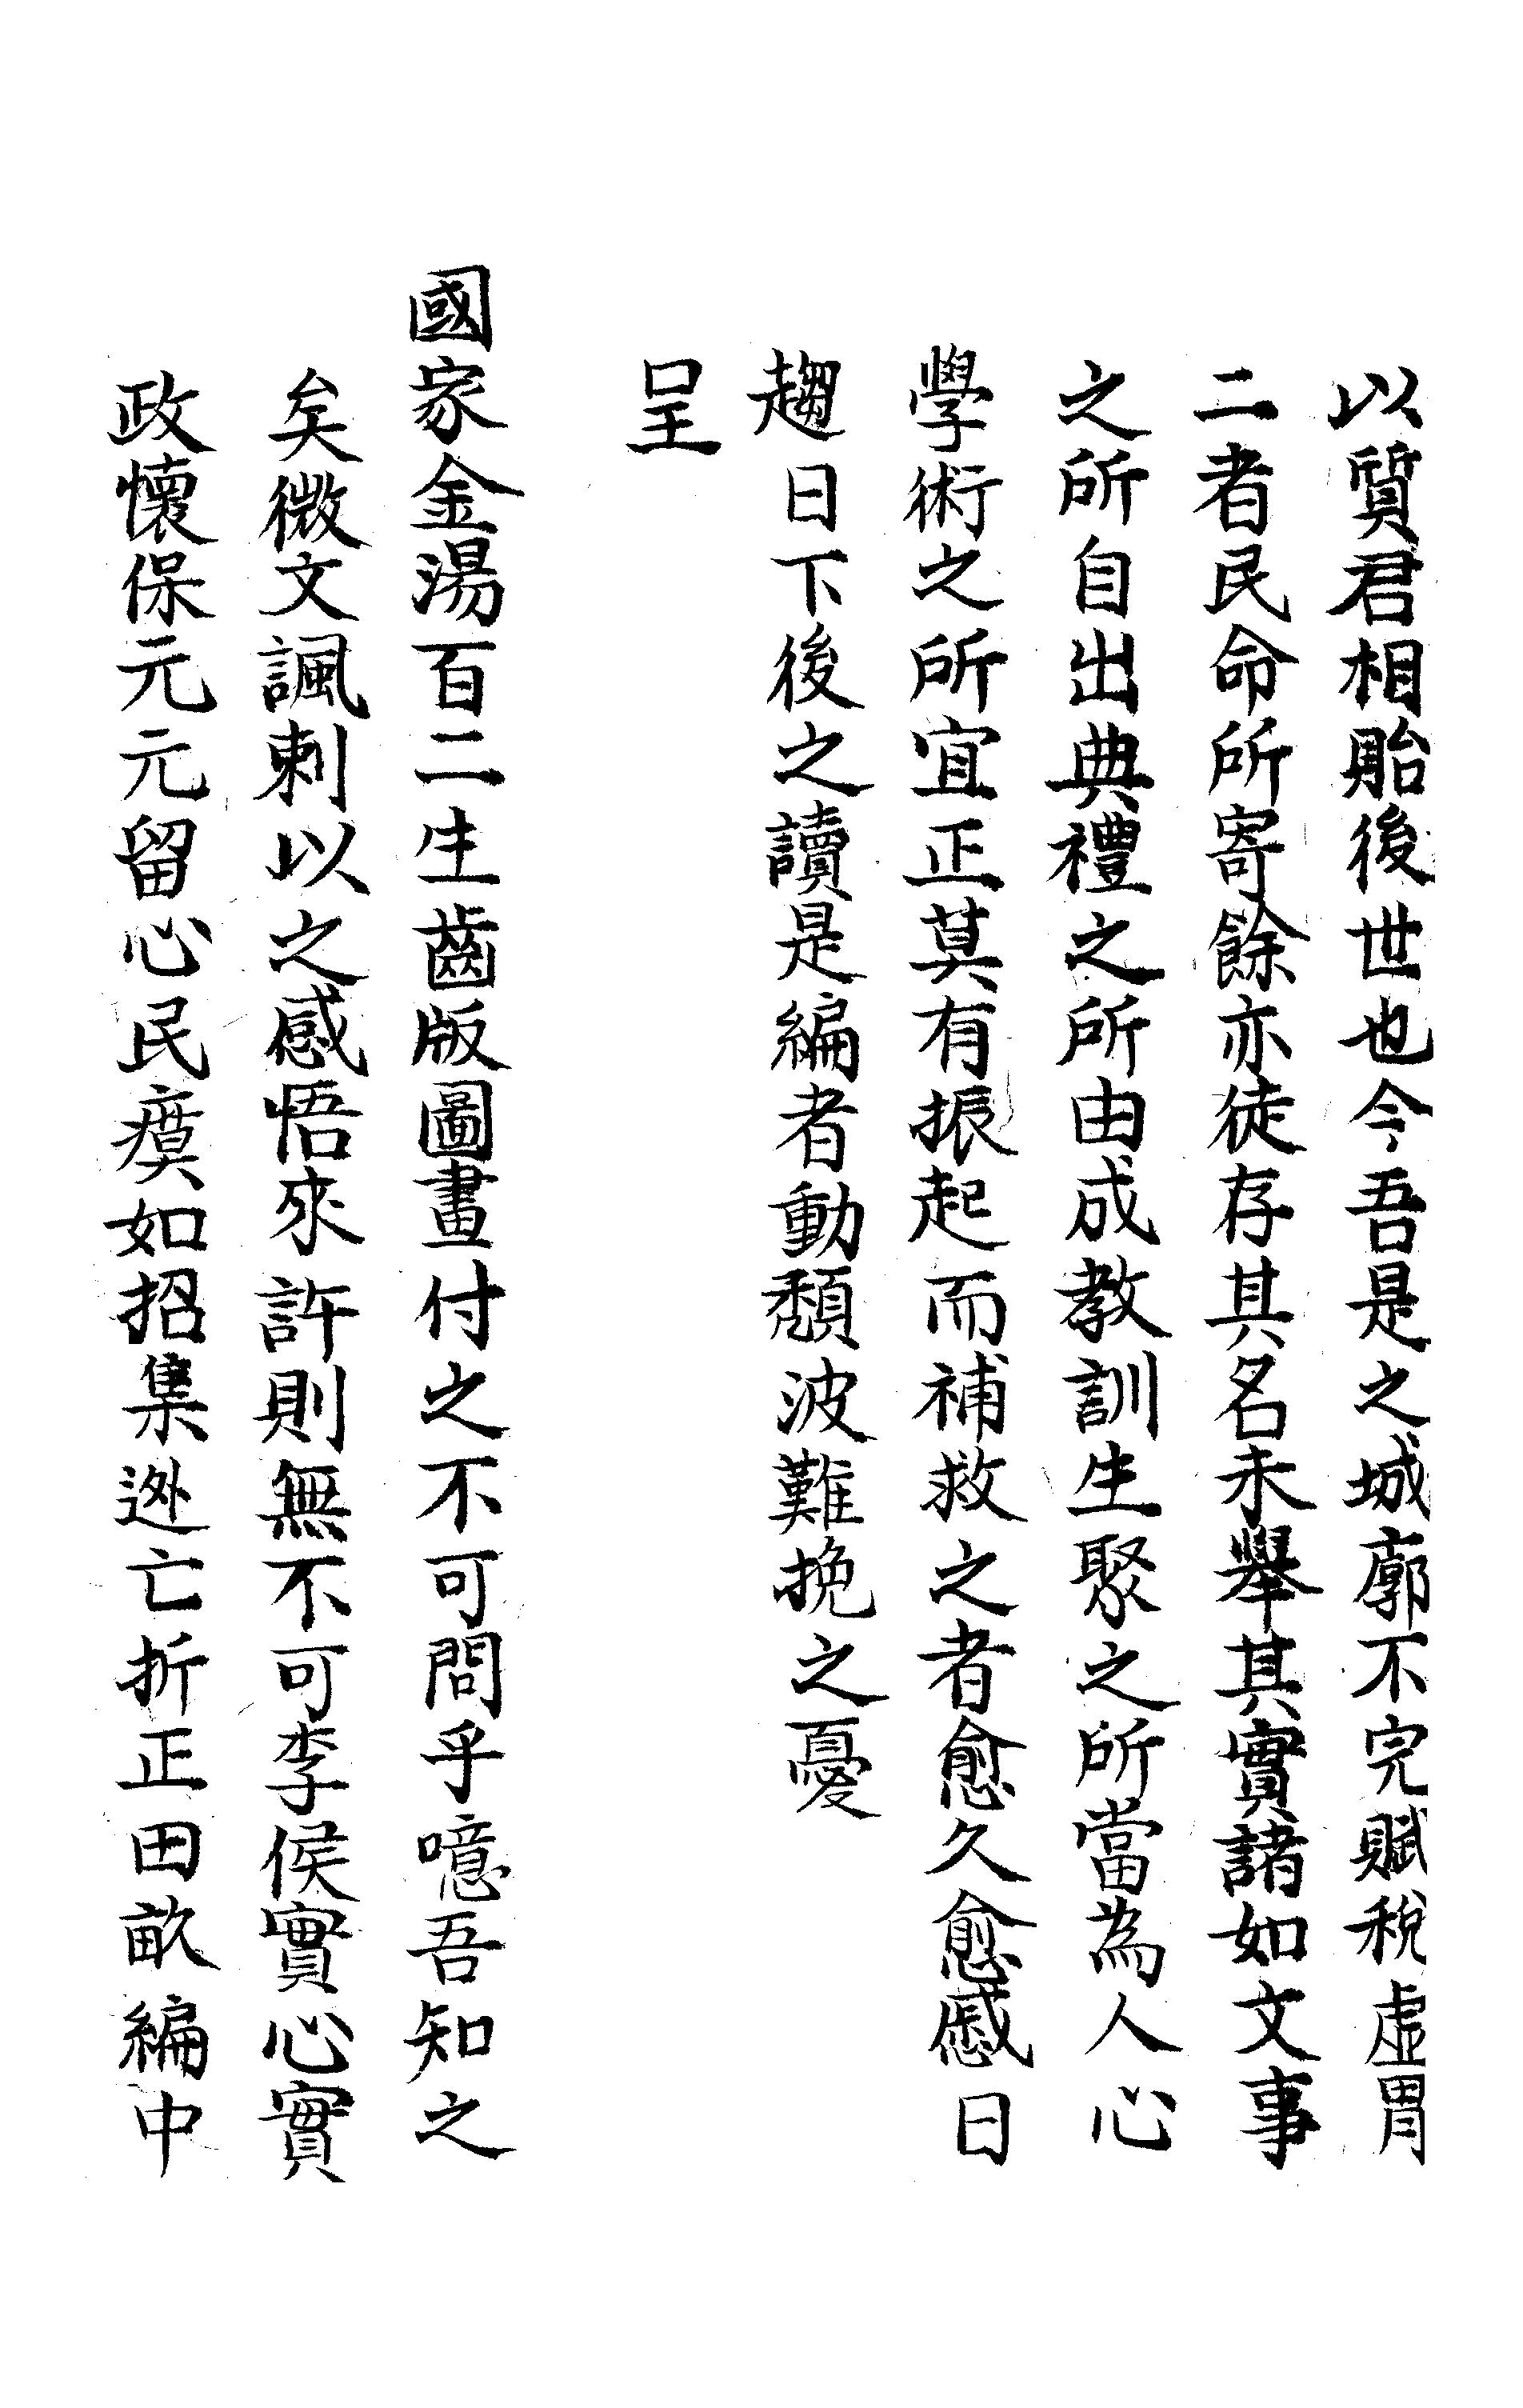 以質君相貽後世也今吾是之城廓不完賦稅虛冐
二者民命所寄餘亦徒存其名未舉其實諸如文事
之所自出典禮之所由成教訓生聚之所當為人心
學術之所宜正莫有振起而補救之者愈久愈慼日
趨日下後之讀是編者動頹波難挽之憂
呈
國家金湯百二生齒版圖畫付之不可問乎噫吾知之
矣微文諷刺以之感悟來許則無不可李侯實心實
政懷保元元留心民瘼如招集逃亡折正田畝編中